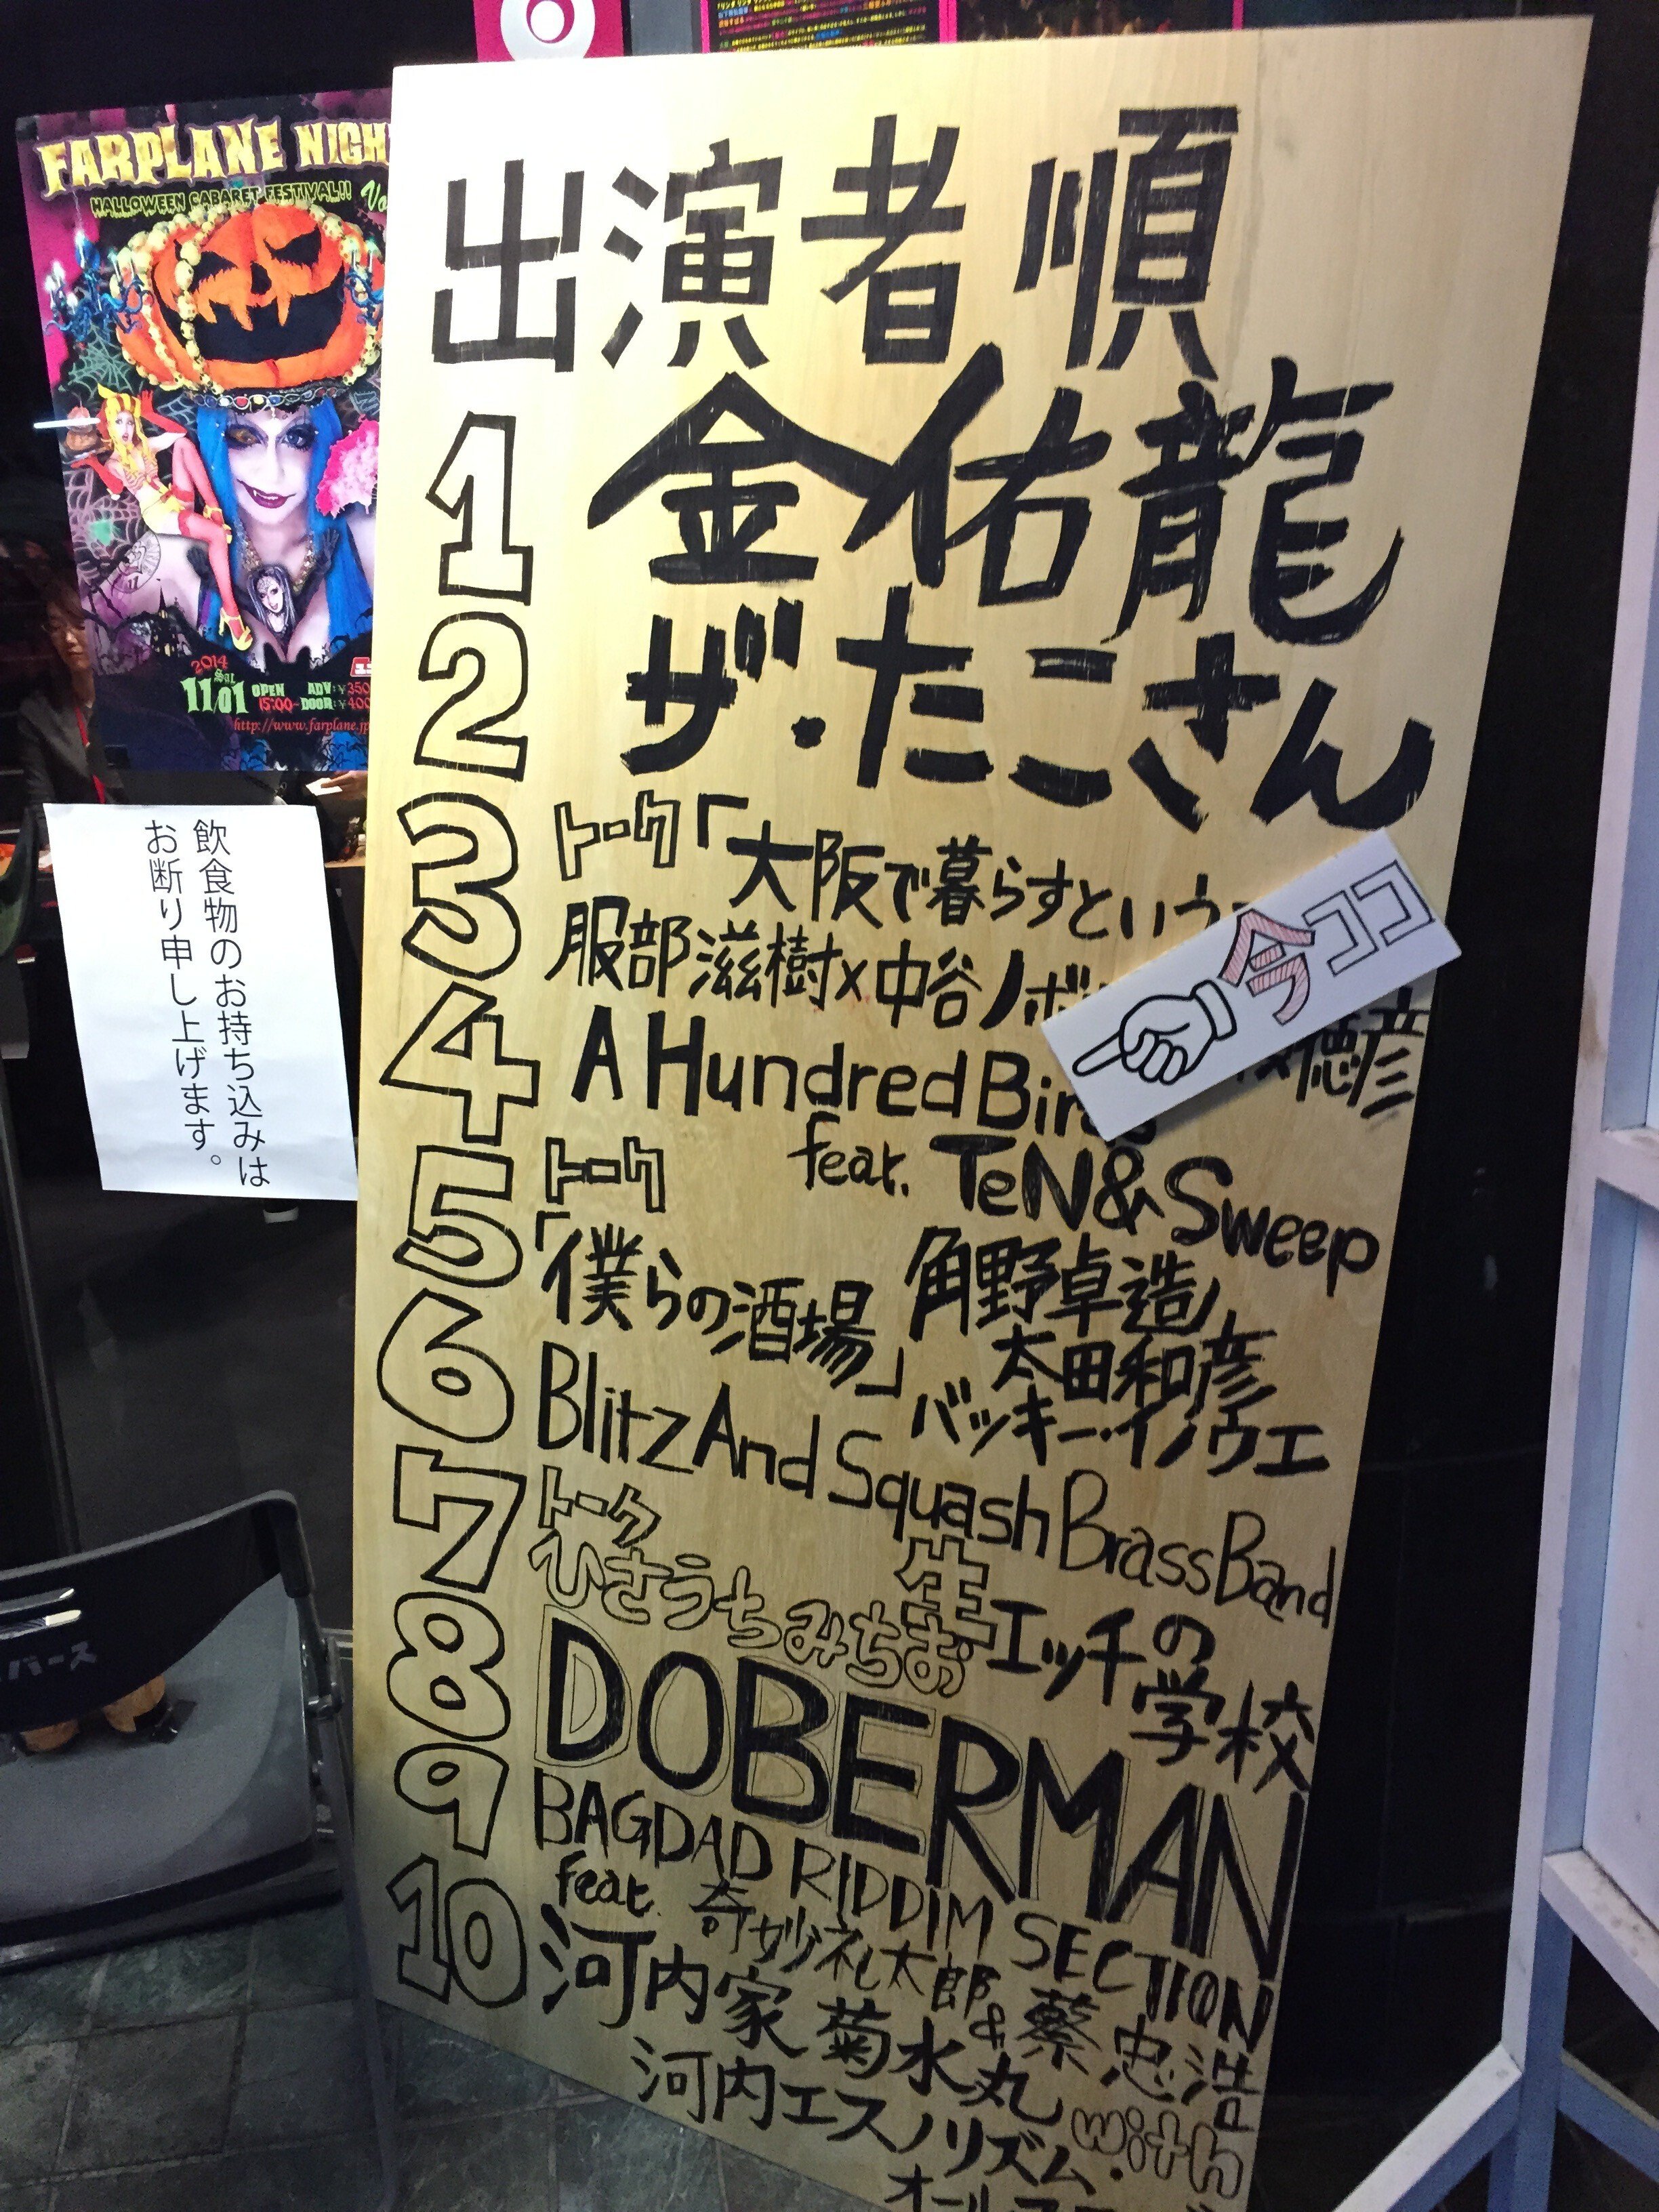 出演者順
1 金佑龍
2 ザ・たこさん
3 トーク「大阪で暮らすという
服部滋樹×中谷ノボ
徳彦
今ココ
4 A Hundred Birds
feat. TeN&Sweep
5 トーク
「僕らの酒場」角野卓造
太田和彦
バッキー・イノウエ
6 Blitz And Squash Brass Band
7 トーク
ひさうちみちお 生エッチの学校
8 DOBERMAN
9 BAGDAD RIDDIM SECTION
feat. 奇妙礼太郎 & 蔡忠浩
10 河内家菊水丸 with
河内エスノリズム・
オール
FARPLANE NIGH
HALLOWEEN CABARET FESTIVAL!! Vo
2014
Sat
11/01 OPEN 15:00~ ADV:¥350 DOOR:¥400
http://www.farplane.jp
飲食物のお持ち込みは
お断り申し上げます。
バース